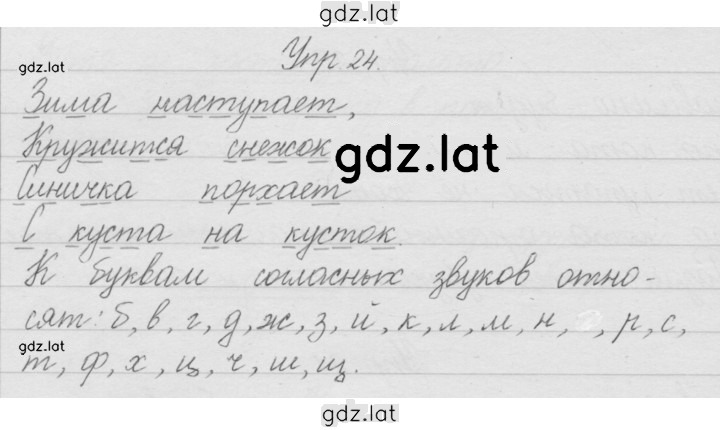 gdz.lat
Упр. 24.
gdz.lat
Зима наступает,
Кружится снежок
gdz.lat
Синичка порхает
С куста на кусток.
К буквам согласных звуков отно-
сят: б, в, г, д, ж, з, й, к, л, м, н, , р, с,
gdz.lat
т, ф, х, ц, ч, ш, щ.
gdz.lat